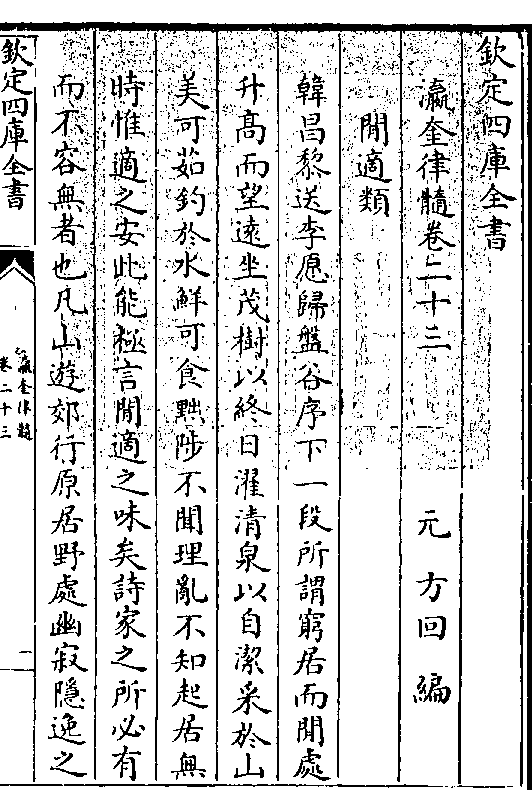 欽定四庫全書
瀛奎律髓卷二十三
元 方回 編
閒適類
韓昌黎送李愿歸盤谷序下一段所謂窮居而閒處
升高而望逺坐茂樹以終日濯清泉以自潔采於山
美可茹釣於水鮮可食黜陟不聞理亂不知起居無
時惟適之安此能極言閒適之味矣詩家之所必有
而不容無者也凡山遊郊行原居野處幽寂隱逸之
欽定四庫全書
瀛奎律髓
卷二十三
一